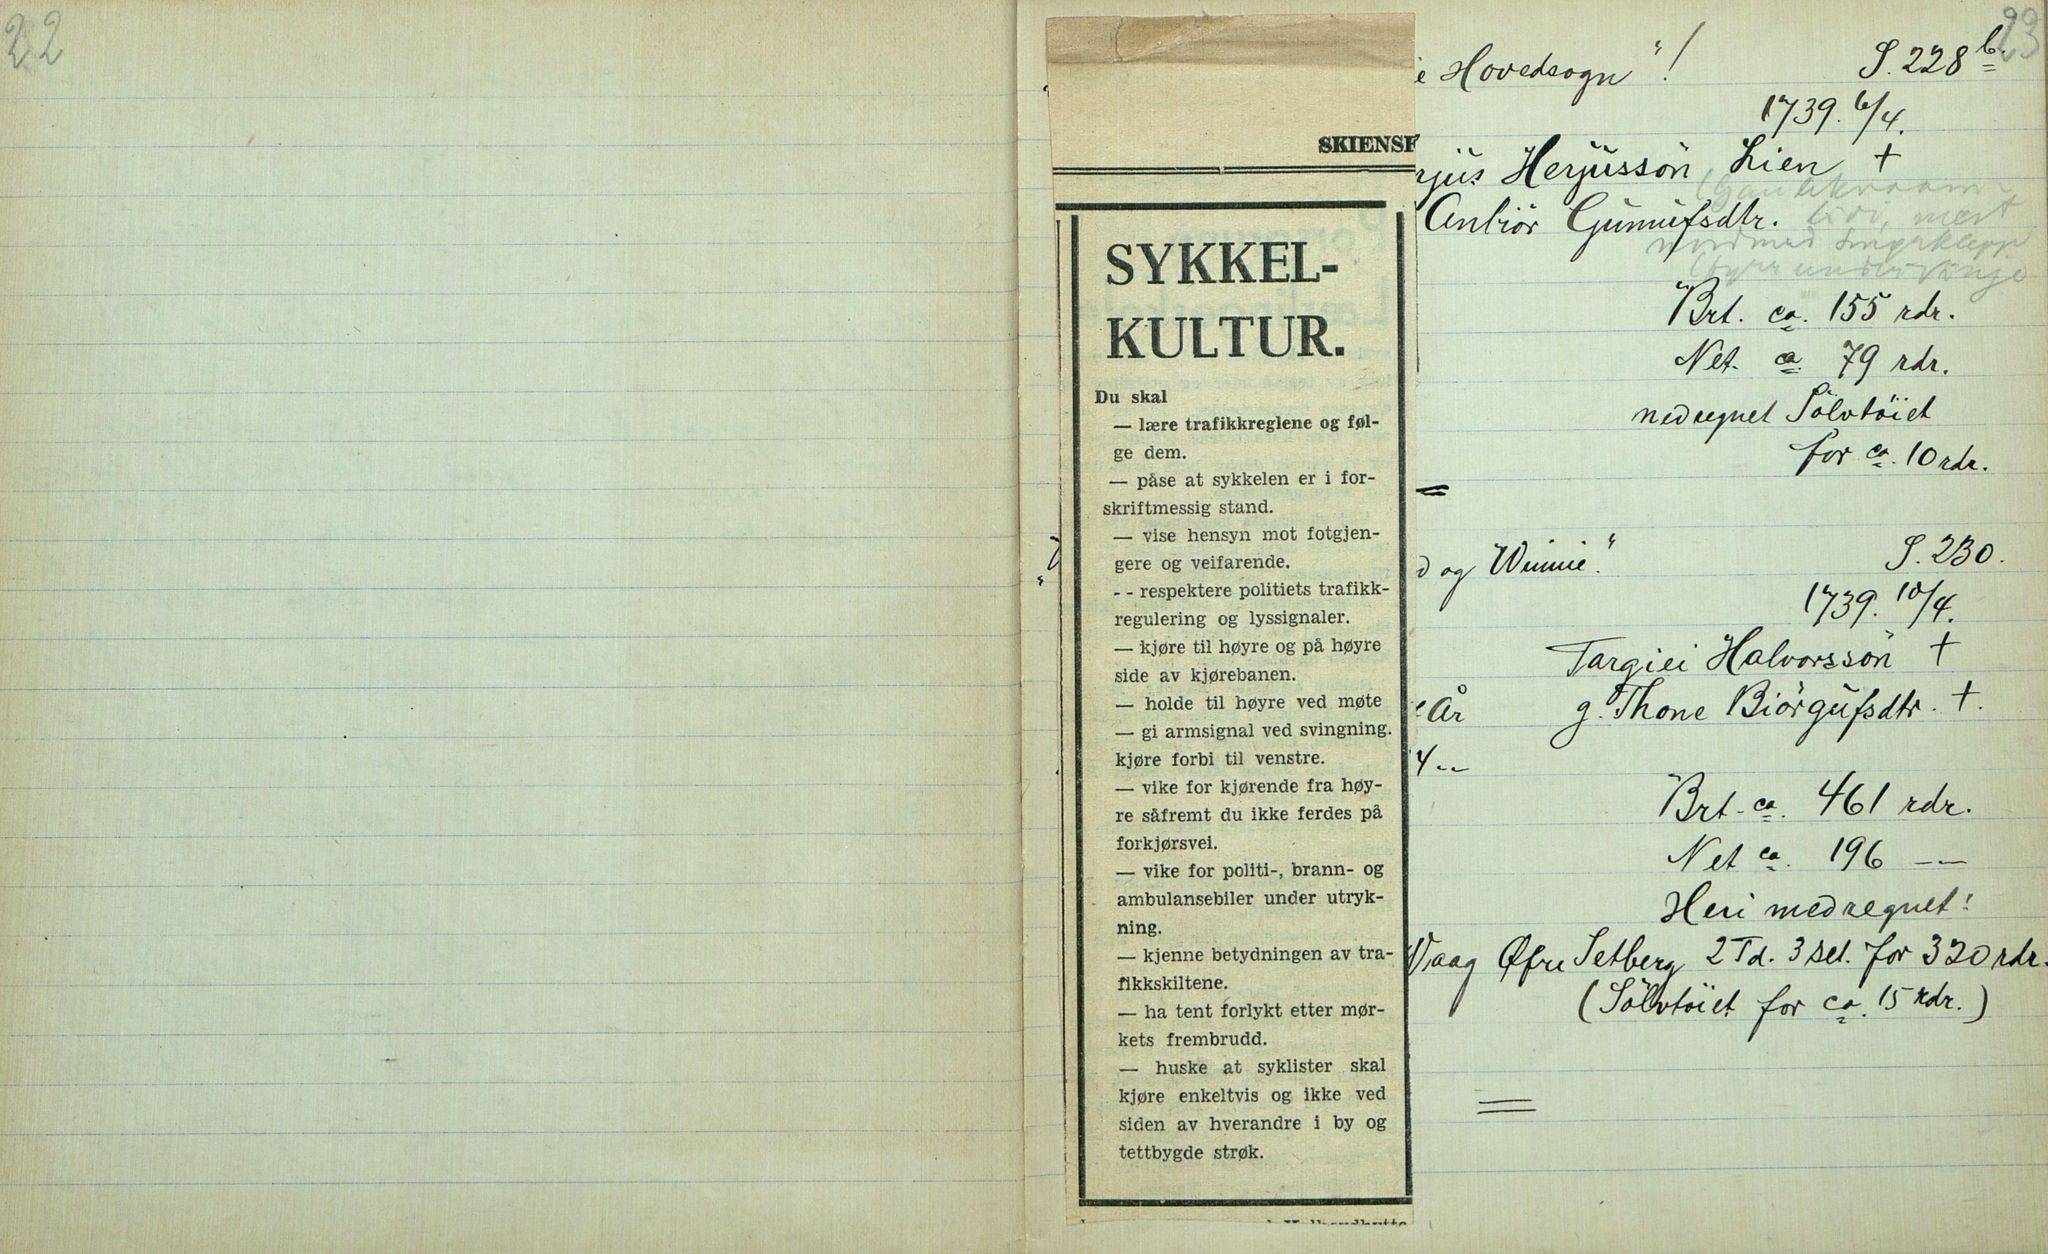 22
23
SKIENSF
SYKKEL-
KULTUR.
Du skal
— lære trafikkreglene og føl-
ge dem.
— påse at sykkelen er i for-
skriftmessig stand.
— vise hensyn mot fotgjen-
gere og veifarende.
-- respektere politiets trafikk-
regulering og lyssignaler.
— kjøre til høyre og på høyre
side av kjørebanen.
— holde til høyre ved møte
— gi armsignal ved svingning.
kjøre forbi til venstre.
— vike for kjørende fra høy-
re såfremt du ikke ferdes på
forkjørsvei.
— vike for politi-, brann- og
ambulansebiler under utryk-
ning.
— kjenne betydningen av tra-
fikkskiltene.
— ha tent forlykt etter mør-
kets frembrudd.
— huske at syklister skal
kjøre enkeltvis og ikke ved
siden av hverandre i by og
tettbygde strøk.
Hovedsogn"! S. 228 b.
1739. 6/4.
rjus Herjussön Lien +
Anbiör Gunufsdtr.
Brt. ca. 155 rdr.
Net. ca. 79 rdr.
medregnet Sölvtöiet
for ca. 10 rdr.
og Winie". S. 230.
1739. 10/4.
Targiei Halvorssön +
År g. Thone Biörgufsdtr. +.
4 --
Brt. ca. 461 rdr.
Net ca. 196 --
Heri medregnet:
Vaag Øfre Setberg 2 Td. 3 set. for 320 rdr.
(Sölvtöiet for ca. 15 rdr.)